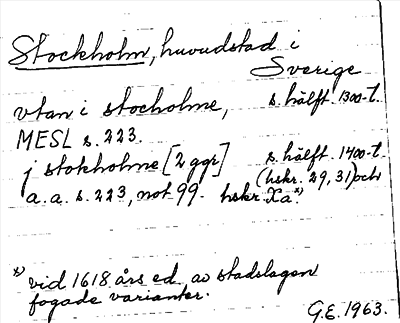 Stockholm, huvudstad i
Sverige
vtan i stocholme, s. hälft. 1300-t.
MESL s. 223.
j stokholme [2 ggr] s. hälft. 1400-t.
a. a. s. 223, not 99. (hskr. 29, 31) och
hskr. Xa *)
*) vid 1618 års ed. av stadslagen
fogade varianter.
G.E. 1963.